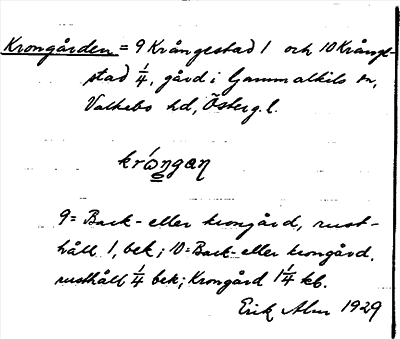 Krongården = 9 Krångestad 1 och 10 Krånge-
stad 1/4, gård i Gammalkils sn,
Valkebo hd, Österg. l.
9 = Back- eller krongård, rust-
håll 1, bek; 10 = Back- eller krongård,
rusthåll 1/4 bek; Krongård 1 1/4 kb.
Erik Alm 1929